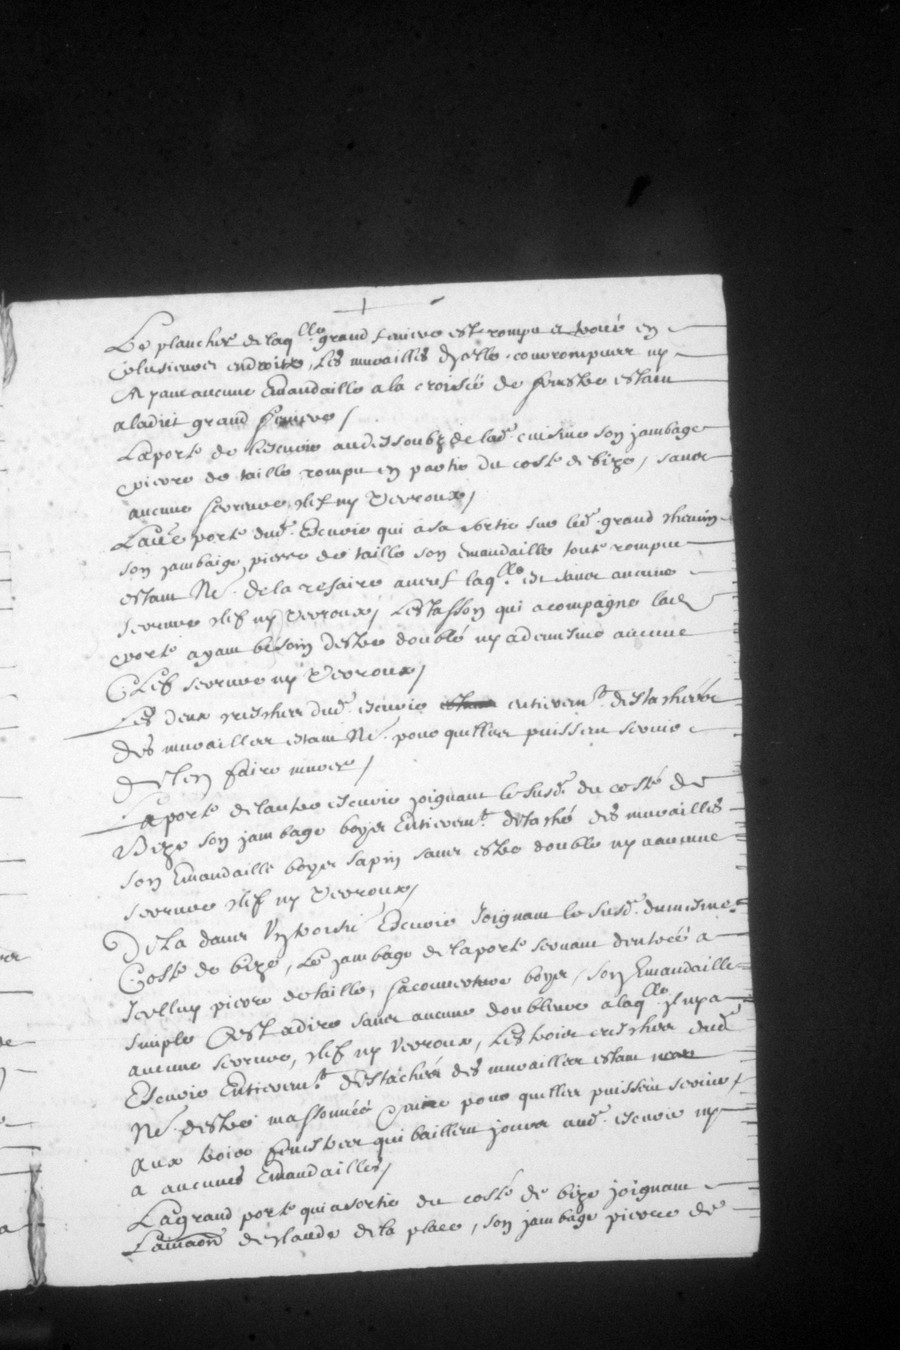 Le plancher de laq.lle grand feniere est rompu et troué en
plusieurs endroitz, Les murailles dycelle corrompues ny
Ayant aucune Emandaille a la croisée de fenestre estant
a ladict grand feniere /
La porte de lescuirie audessoubz de lad. cuisine son jambage
pierre de taille rompu en partie du costé de bize, sans
aucune serrure clef ny Verroux /
Lautre porte dud. Escuirie qui à sa sortie sur led. grand chemin
son jambaige pierre de taille son Emandaille toute rompue
estant Ne. de la refaire a neuf laq.lle est sans aucune
serrure clef ny Verroux / qui acompagne lad.
porte ayant besoin destre doublé ny a de mesme aucune
Clef serrure ny Verroux /
Les deux creches dud. escuirie entierem.t destachées
des murailles estant Ne. pour quelles puissent servir
de les faire murer /
La porte de lautre escuirie joignant le susd. du costé de
Bize son jambage boyes Entierem.t détaché des murailles
son Emandaille boyes sapin sans estre double ny aucune
serrure clef ny Verroux /
De la dans Escuirie Joignant le susd. du mesme
Costé de bize, Le jambage de la porte servant dentrée a
Icelluy pierre de taille, sa couverture boyes, son Emandaille
simple Cest a dire sans aucune doubleure a laq.lle ny a
aucune serrure, clef ny Verroux, Les trois creches dud.
Escuirie Entierem.t destachées des murailles estant
Ne. destre massonnées pour quelles puissent servir /
Aux trois fenestres qui baillent jour aud. escuirie ny
a aucunes Emandailles /
La grand porte qui a sortie du costé de bize joignant
de la place, son jambage pierre de